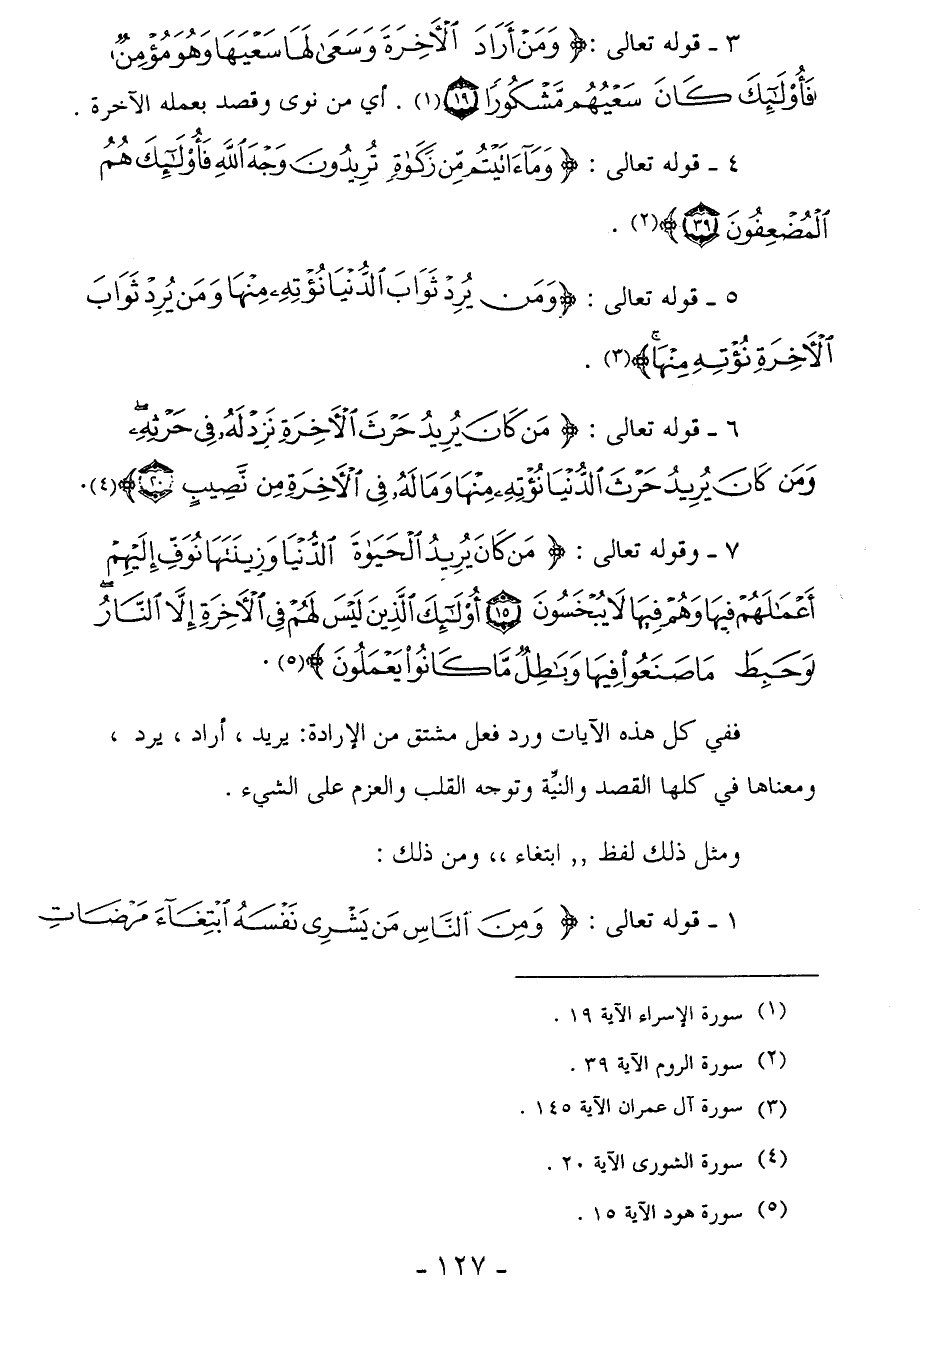 ٣ ـ قوله تعالى : ﴿ وَمَنْ أَرَادَ ٱلْأَخِرَةَ وَسَعَىٰ لَهَا سَعْيَهَا وَهُوَ مُؤْمِنٌ
فَأُو۟لَٰٓئِكَ كَانَ سَعْيُهُم مَّشْكُورًا ١٩﴾(١) . أي من نوى وقصد بعمله الآخرة .
٤ ـ قوله تعالى : ﴿ وَمَآ ءَاتَيْتُم مِّن زَكَوٰةٍ تُرِيدُونَ وَجْهَ ٱللَّهِ فَأُو۟لَٰٓئِكَ هُمُ
ٱلْمُضْعِفُونَ ٣٩﴾(٢) .
٥ ـ قوله تعالى : ﴿وَمَن يُرِدْ ثَوَابَ ٱلدُّنْيَا نُؤْتِهِۦ مِنْهَا وَمَن يُرِدْ ثَوَابَ
ٱلْأَخِرَةِ نُؤْتِهِۦ مِنْهَاۚ﴾(٣) .
٦ ـ قوله تعالى : ﴿ مَن كَانَ يُرِيدُ حَرْثَ ٱلْأَخِرَةِ نَزِدْ لَهُۥ فِى حَرْثِهِۦۖ
وَمَن كَانَ يُرِيدُ حَرْثَ ٱلدُّنْيَا نُؤْتِهِۦ مِنْهَا وَمَا لَهُۥ فِى ٱلْأَخِرَةِ مِن نَّصِيبٍ ٢٠﴾(٤) .
٧ ـ وقوله تعالى : ﴿ مَن كَانَ يُرِيدُ ٱلْحَيَوٰةَ ٱلدُّنْيَا وَزِينَتَهَا نُوَفِّ إِلَيْهِمْ
أَعْمَٰلَهُمْ فِيهَا وَهُمْ فِيهَا لَا يُبْخَسُونَ ١٥ أُو۟لَٰٓئِكَ ٱلَّذِينَ لَيْسَ لَهُمْ فِى ٱلْأَخِرَةِ إِلَّا ٱلنَّارُۖ
وَحَبِطَ مَا صَنَعُوا۟ فِيهَا وَبَٰطِلٌ مَّا كَانُوا۟ يَعْمَلُونَ ﴾(٥) .
ففي كل هذه الآيات ورد فعل مشتق من الإرادة: يريد ، أراد ، يرد ،
ومعناها في كلها القصد والنيِّة وتوجه القلب والعزم على الشيء .
ومثل ذلك لفظ ,, ابتغاء ،، ومن ذلك :
١ ـ قوله تعالى : ﴿ وَمِنَ ٱلنَّاسِ مَن يَشْرِى نَفْسَهُ ٱبْتِغَآءَ مَرْضَاتِ
(١) سورة الإسراء الآية ١٩ .
(٢) سورة الروم الآية ٣٩ .
(٣) سورة آل عمران الآية ١٤٥ .
(٤) سورة الشورى الآية ٢٠ .
(٥) سورة هود الآية ١٥ .
- ١٢٧ -